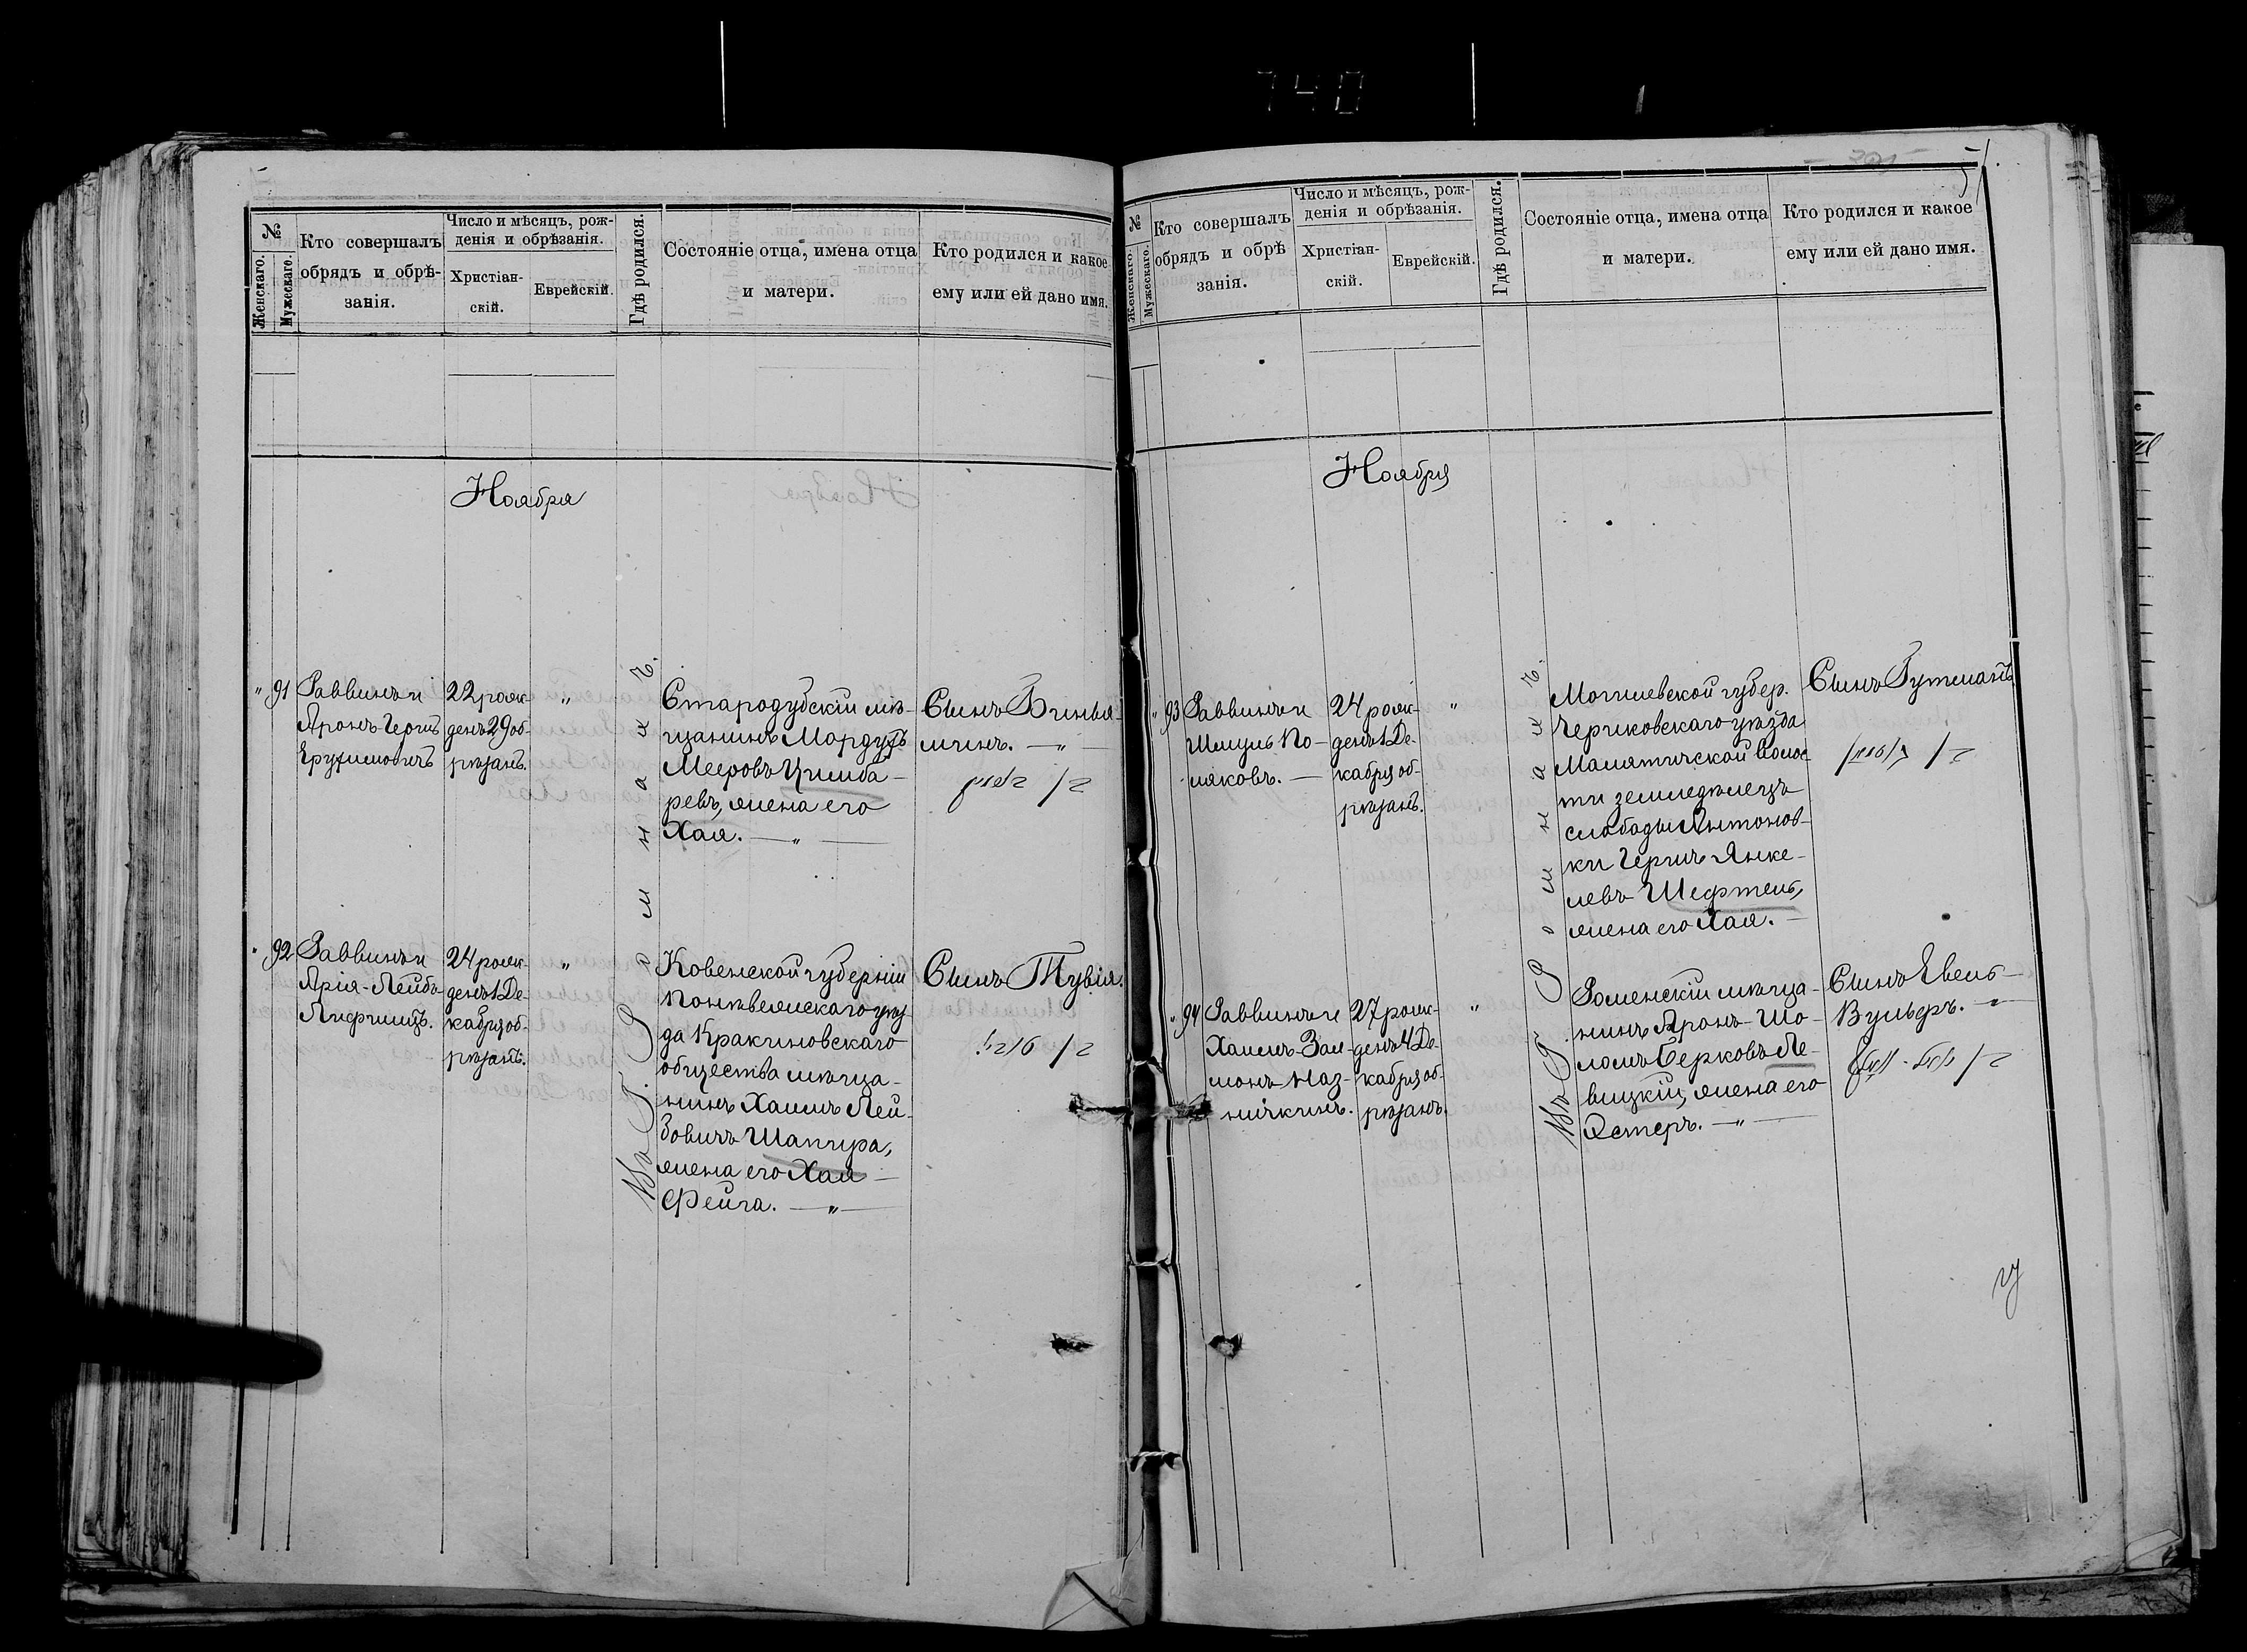 740
№
Женскаго.
Мужескаго.
Кто совершалъ
обрядъ и обрѣ-
занія.
Число и мѣсяцъ, рож-
денія и обрѣзанія.
Христіан-
скій.
Еврейскій.
Гдѣ родился.
Состояніе отца, имена отца
и матери.
Кто родился и какое
ему или ей дано имя.
Ноября
" 91
Раввинъ и
Аронъ-Гершъ
Ерухимовичъ
22 рож-
денъ 29 об-
рѣзанъ.
"
Стародубскій мѣ-
щанинъ Мордухъ
Мееровъ Цимба-
ревъ, жена его
Хая. — " —
Сынъ Бинья-
минъ. — " —
" 92
Раввинъ и
Арія-Лейбъ
Лифшицъ.
24 рож-
денъ 1 Де-
кабря об-
рѣзанъ.
"
Ковенской губерніи
Поневѣжскаго уѣз-
да Кракиновскаго
общества мѣща-
нинъ Хаимъ Лей-
бовичъ Шапира,
жена его Хая-
Фейга. — " —
Сынъ Тувія.
Въ Г. Ромнахъ.
№
Женскаго.
Мужескаго.
Кто совершалъ
обрядъ и обрѣ
занія.
Число и мѣсяцъ, рож-
денія и обрѣзанія.
Христіан-
скій.
Еврейскій.
Гдѣ родился.
Состояніе отца, имена отца
и матери.
Кто родился и какое
ему или ей дано имя.
Ноября
" 93
Раввинъ и
Шмуль По-
ляковъ. —
24 рож-
денъ 1 Де-
кабря об-
рѣзанъ.
"
Могилевской губер.
Чериковскаго уѣзда
Малятичской волос
ти земледѣлецъ
слободы Антонов-
ки Гершъ Янке-
левъ Шефтель,
жена его Хая. —
Сынъ Гутманъ.
" 94
Раввинъ и
Хаимъ-Зал-
монъ Маз-
ничкинъ.
27 рож-
денъ 4 Де-
кабря об-
рѣзанъ.
"
Роменскій мѣща-
нинъ Аронъ-Шо-
ломъ Берковъ Ле-
вицкій, жена его
Эстеръ. — " —
Сынъ Евель-
Вульфъ. — " —
Въ Г. Ромнахъ.